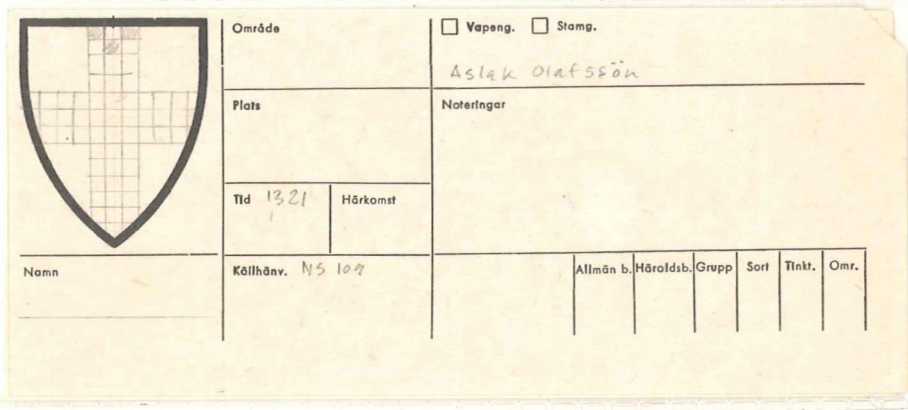 Område
☐ Vapeng. ☐ Stamg.
Aslak Olafssön
Plats
Noteringar
Tid 1321
Härkomst
Namn
Källhänv. NS 109
Allmän b. Häroldsb. Grupp Sort Tinkt. Omr.